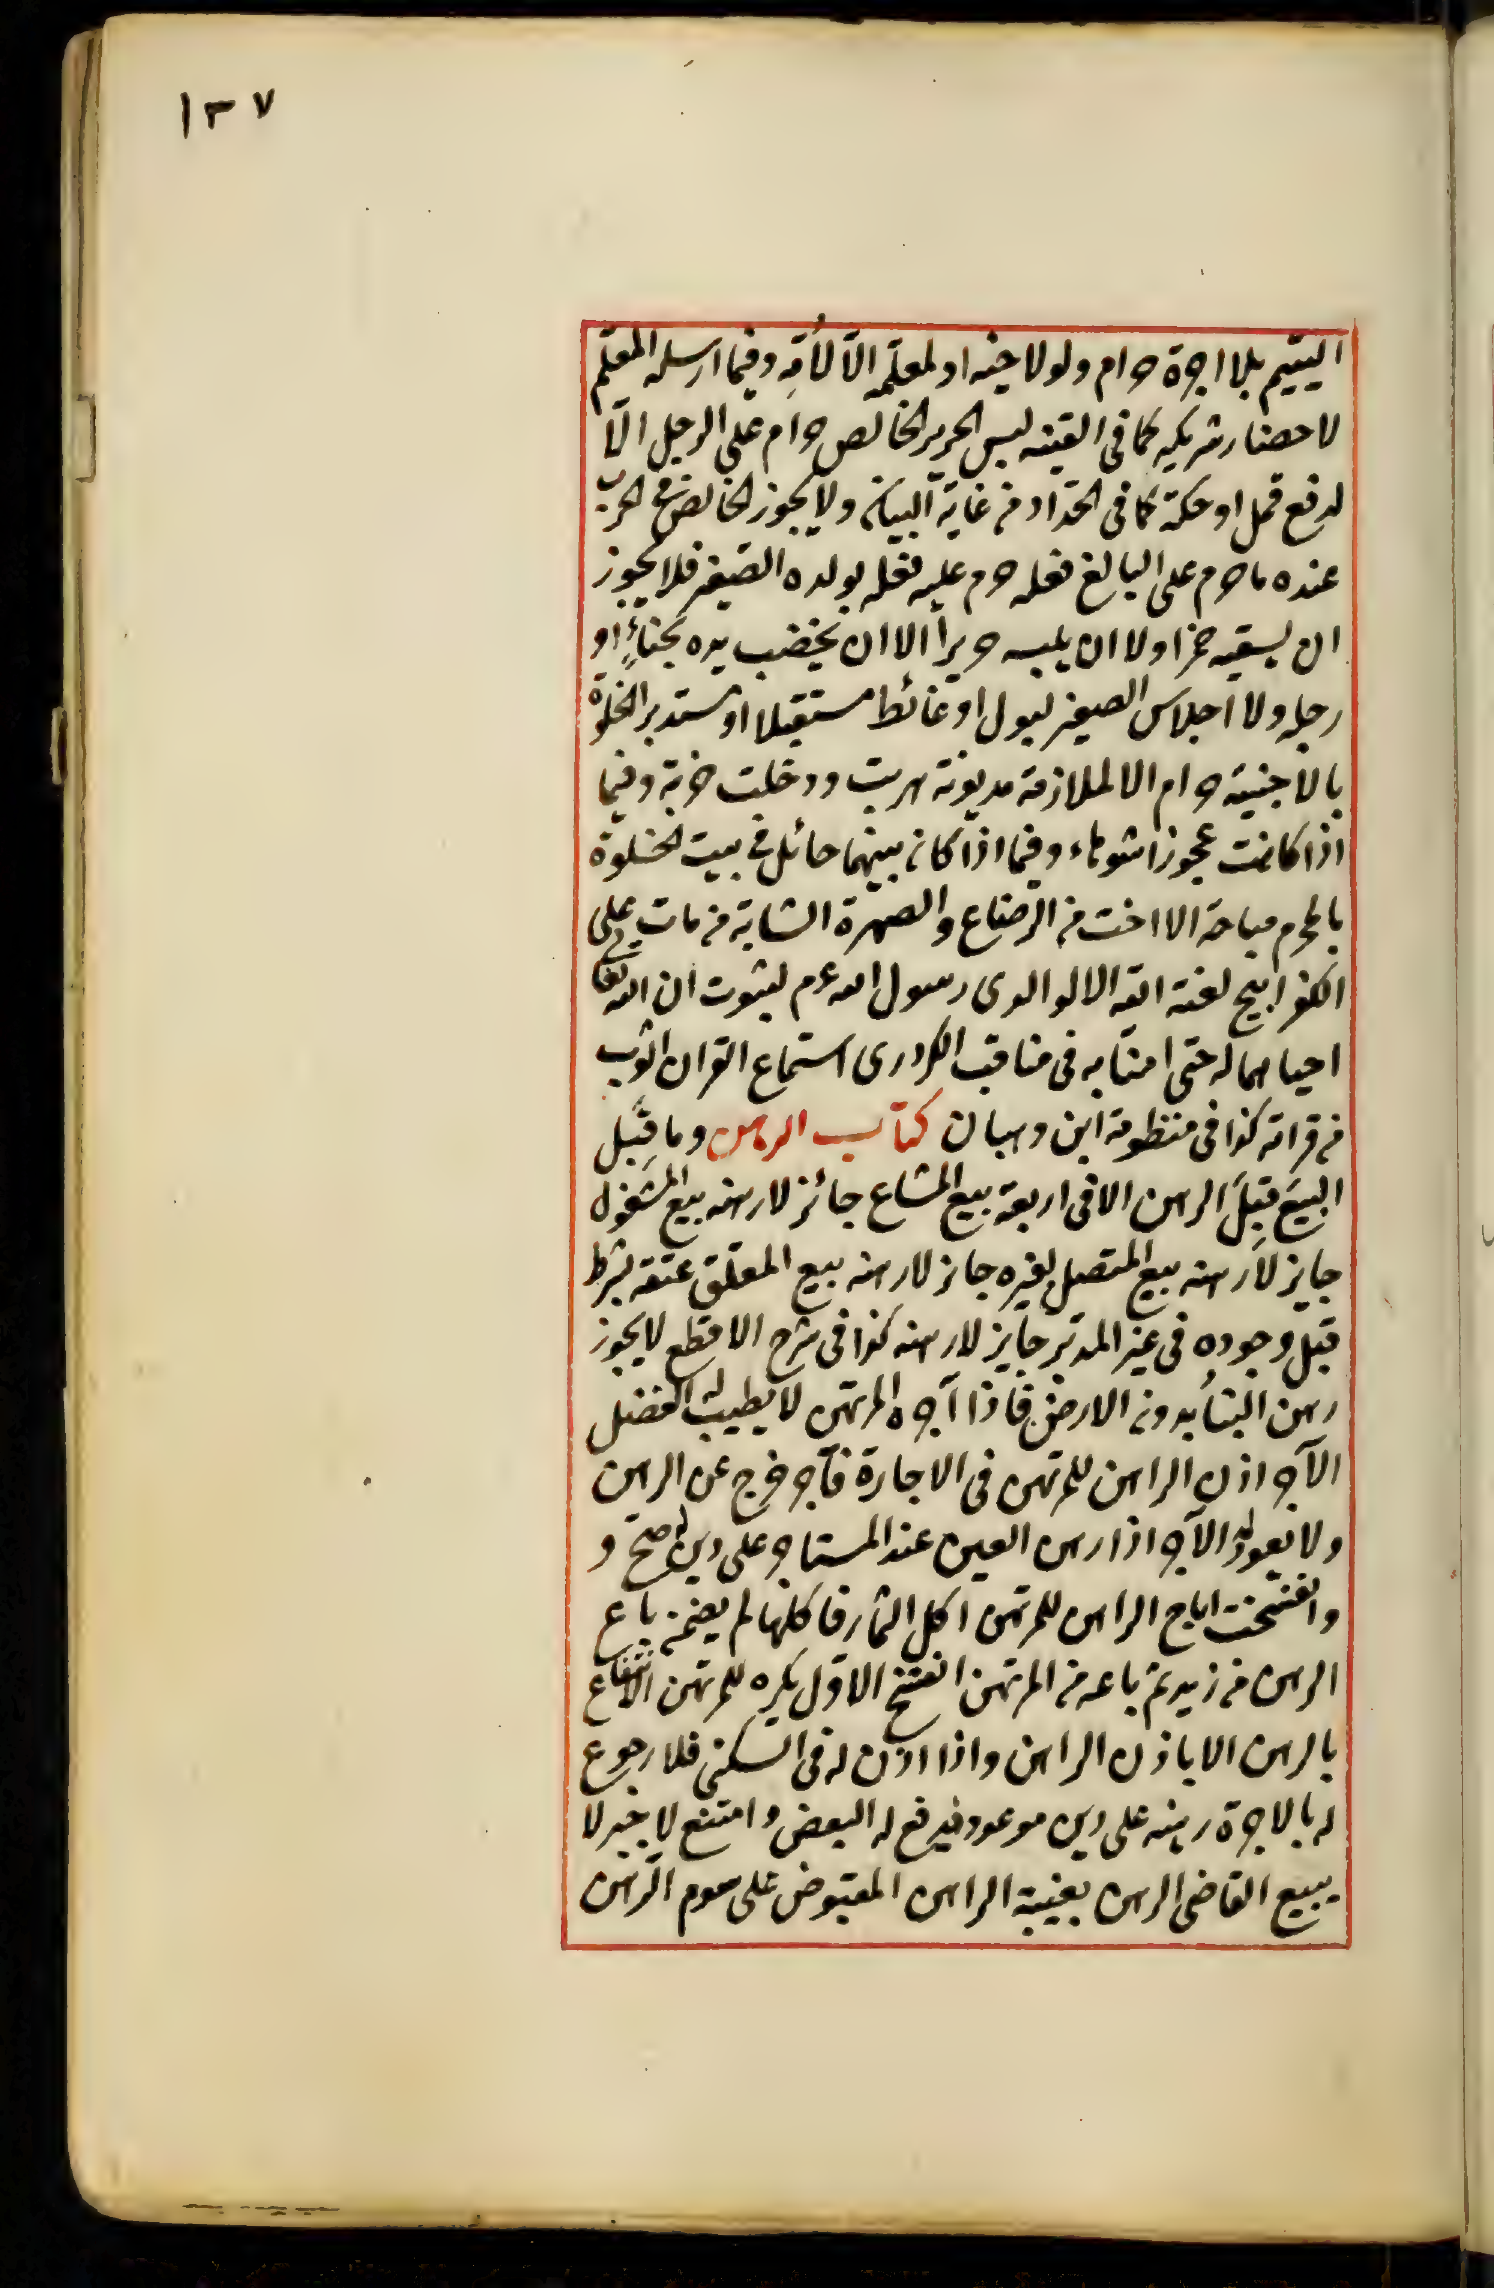 ١٣٧
اليتيم بلا اجرة حرام ولو لاخيه او لمعلمه الّا لاُمّهِ وفيما ارسله المعلّم
لاحضار شريكه كما فى القنيه لبس الحرير الخالص حرام على الرجل الّا
لدفع قمل او حكة كما فى الحدادى من غاية البيان ولا يجوز الخالص فى الحرب
عنده ما حرم على البالغ فعله حرم عليه فعله بولده الصّغير فلا يجوز
ان يسقيه خمرا ولا ان يلبسه حريراً الا ان يخضب يده بحناءٍ او
رجله ولا اجلاس الصغير لبول او غائط مستقبلا او مستدبر الخلوة
بالاجنبية حرام الا لملازمة مديونة هربت ودخلت خربة وفيما
اذا كانت عجوزا شوهاء وفيما اذا كان بينهما حائل فى بيت الخلوة
بالمحرم مباحة الا اخت من الرّضاع والصهرة الشابة من مات على
الكفر ابيح لعنة الله الا لوالدى رسول الله عم لثبوت ان الله تعا
احياهما له حتى امنا به فى مناقب الكردرى استماع القران اثوب
من قراته كذا فى منظومة ابن وهبان كتاب الرهن وما قَبِل
البيعَ قَبِلَ الرهن الا فى اربعة بيع المشاع جائز لا رهنه بيع المشغول
جايز لا رهنه بيع المتصل بغيره جايز لا رهنه بيع المعلّق عتقه بشرط
قبل وجوده فى غير المدبّر جايز لا رهنه كذا فى شرح الاقطع لا يجوز
رهن البناء بدون الارض فاذا آجره المرتهن لا يطيب له الفضل
الآجر اذن الراهن للمرتهن فى الاجارة فآجر خرج عن الرهن
ولا يعود له الآجر اذا رهن العين عند المستاجر على دين له صحّ و
وانفسخت اباح الراهن للمرتهن اكل الثمار فاكلها لم يضمن باع
الرهن من زيد ثم باعه من المرتهن انفسخ الاوّل يكره للمرتهن الانتفاع
بالرهن الا باذن الراهن واذا اذن له فى السكنى فلا رجوع
له بالاجرة رهنه على دين موعود فدفع له البعض وامتنع لا جبر لا
يبيع القاضى الرهن بغيبة الراهن المقبوض على سوم الرّهن